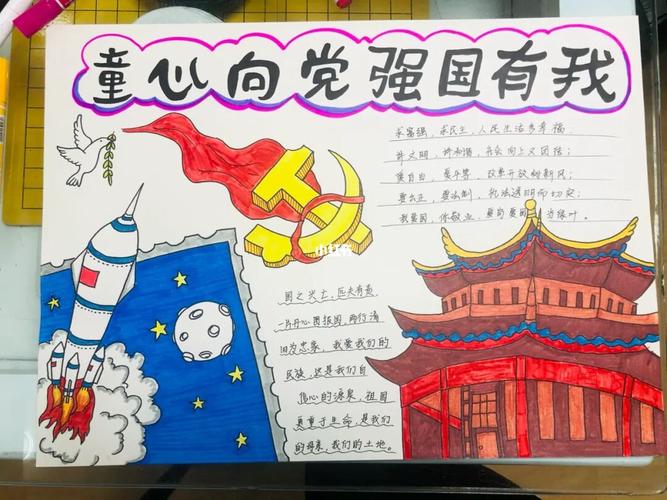 童心向党 强国有我
求富强，求民主，人民生活步幸福，
讲文明，讲和谐，社会向上又团结；
要自由，要平等，改革开放树新风；
要公正，要法制，执法透明而切实；
我爱国，你敬业，为绿叶。
小红书
国之兴亡，匹夫有责，
一片丹心图报国，两行清
泪为忠家，我爱我们的
民族，这是我们自
信心的源泉，祖国
更重于生命，是我们
的母亲，我们的土地。